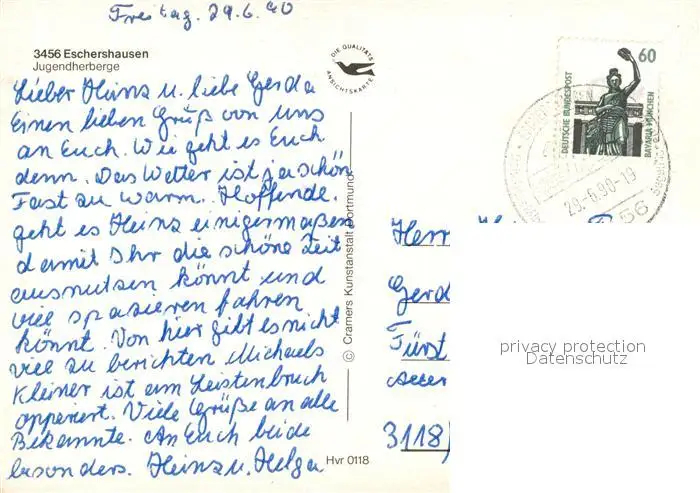 Freitag. 29.6.90
3456 Eschershausen
Jugendherberge
DIE QUALITÄTS
ANSICHTSKARTE
Lieber Heinz u. liebe Gerda
Einen lieben Gruß von uns
an Euch. Wie geht es Euch
denn. Das Wetter ist ja schön
Fast zu warm. Hoffende.
geht es Heinz einigermaßen
damit Ihr die schöne Zeit
ausnutzen könnt und
viel spazieren fahren
könnt. Von hier gibt es nicht
viel zu berichten Michaels
Kleiner ist am Leistenbruch
opperiert. Viele Grüße an alle
Bekannte. An Euch beide
besonders. Heinz u. Helga
© Cramers Kunstanstalt Dortmund
Hvr 0118
60
DEUTSCHE BUNDESPOST
BAVARIA MÜNCHEN
29.-6.90-19
56
Herr
Gerd
Fürst
3118
privacy protection
Datenschutz